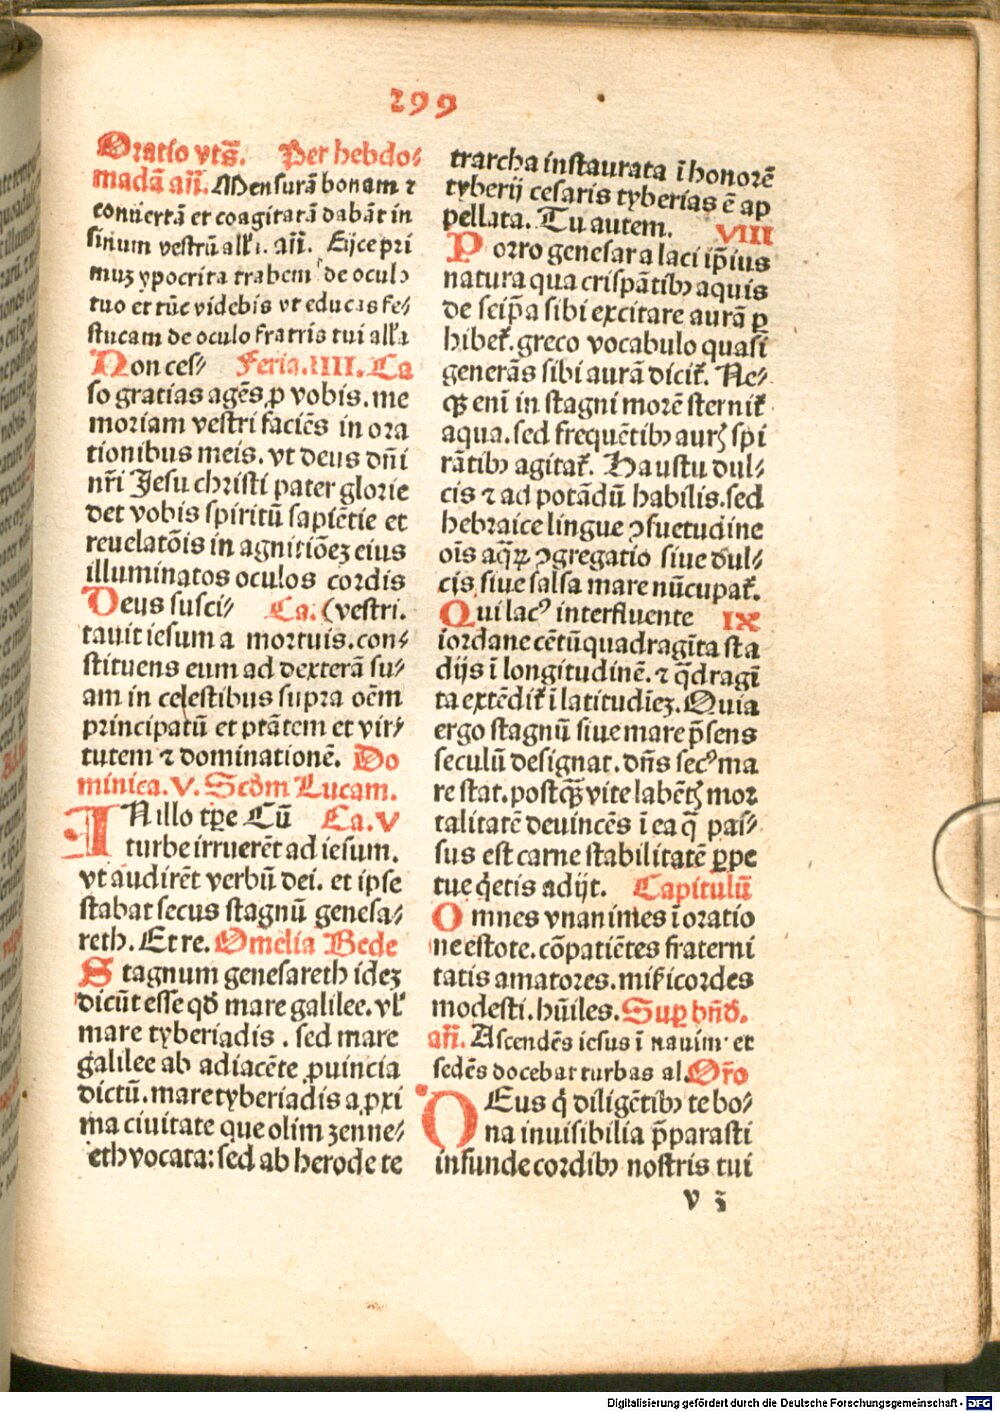 299
Oratio vts̄. Per hebdo⸗
madā an̄. Mensurā bonam ⁊
confertā et coagitatā dabāt in
sinum vestrū all'a. an̄. Eijce pri
muz ypocrita trabem de oculo
tuo et tūc videbis vt educas fe⸗
stucam de oculo fratris tui all'a
Non ces⸗ Feria.IIII. Ca
so gratias agēs ꝓ vobis. me
moriam vestri faciēs in ora
tionibus meis. vt deus dn̄i
nr̄i Jesu christi pater glorie
det vobis spiritū sapiētie et
reuelatōis in agnitiōez eius
illuminatos oculos cordis
Deus susci⸗ Ca. (vestri.
tauit iesum a mortuis. con⸗
stituens eum ad dexterā su⸗
am in celestibus supra oēm
principatū et ptātem et vir⸗
tutem ⁊ dominationē. Do
minica. V. Scd̄m Lucam.
IN illo tꝑe Cū Ca. V
turbe irruerēt ad iesum.
vt audirēt verbū dei. et ipse
stabat secus stagnū genesa⸗
reth. Et re. Omelia Bede
Stagnum genesareth idez
dicūt esse qd̄ mare galilee. vl'
mare tyberiadis. sed mare
galilee ab adiacēte ꝓuincia
dictū. mare tyberiadis a ꝓxi
ma ciuitate que olim zenne⸗
reth vocata: sed ab herode te
trarcha instaurata ī honorē
tyberij cesaris tyberias ē ap
pellata. Tu autem. VIII
Porro genesar a laci ip̄ius
natura qua crispātibꝫ aquis
de seip̄a sibi excitare aurā ꝑ
hibet᷑. greco vocabulo quasi
generās sibi aurā dicit᷑. Ne⸗
qꝫ enī in stagni morē sternit᷑
aqua. sed frequētibꝫ auris spi
rātibꝫ agitat᷑. Haustu dul⸗
cis ⁊ ad potādū habilis. sed
hebraice lingue ꝯsuetudine
oīs aq̄ꝝ ꝯgregatio siue dul⸗
cis siue salsa mare nūcupat᷑.
Qui lacꝰ interfluente IX
iordane cētūquadragīta sta
dijs ī longitudinē. ⁊ q̄dragī
ta extēdit᷑ ī latitudīez. Quia
ergo stagnū siue mare p̄sens
seculū designat. dn̄s secꝰ ma
re stat. postqꝫ̄ vite labētis mor
talitatē deuincēs ī ea q̄ pas⸗
sus est carne stabilitatē ꝑpe
tue q̇etis adijt. Capitulū
Omnes vnanimes ī oratio
ne estote. cōpatiētes fraterni
tatis amatores. mīcordes
modesti. hūiles. Suꝑ bn̄d̄.
an̄. Ascendēs iesus ī nauim et
sedēs docebat turbas al. Or̄o
DEus q̇ diligētibꝫ te bo⸗
na inuisibilia p̄parasti
infunde cordibꝫ nostris tui
v 3
Digitalisierung gefördert durch die Deutsche Forschungsgemeinschaft - DFG